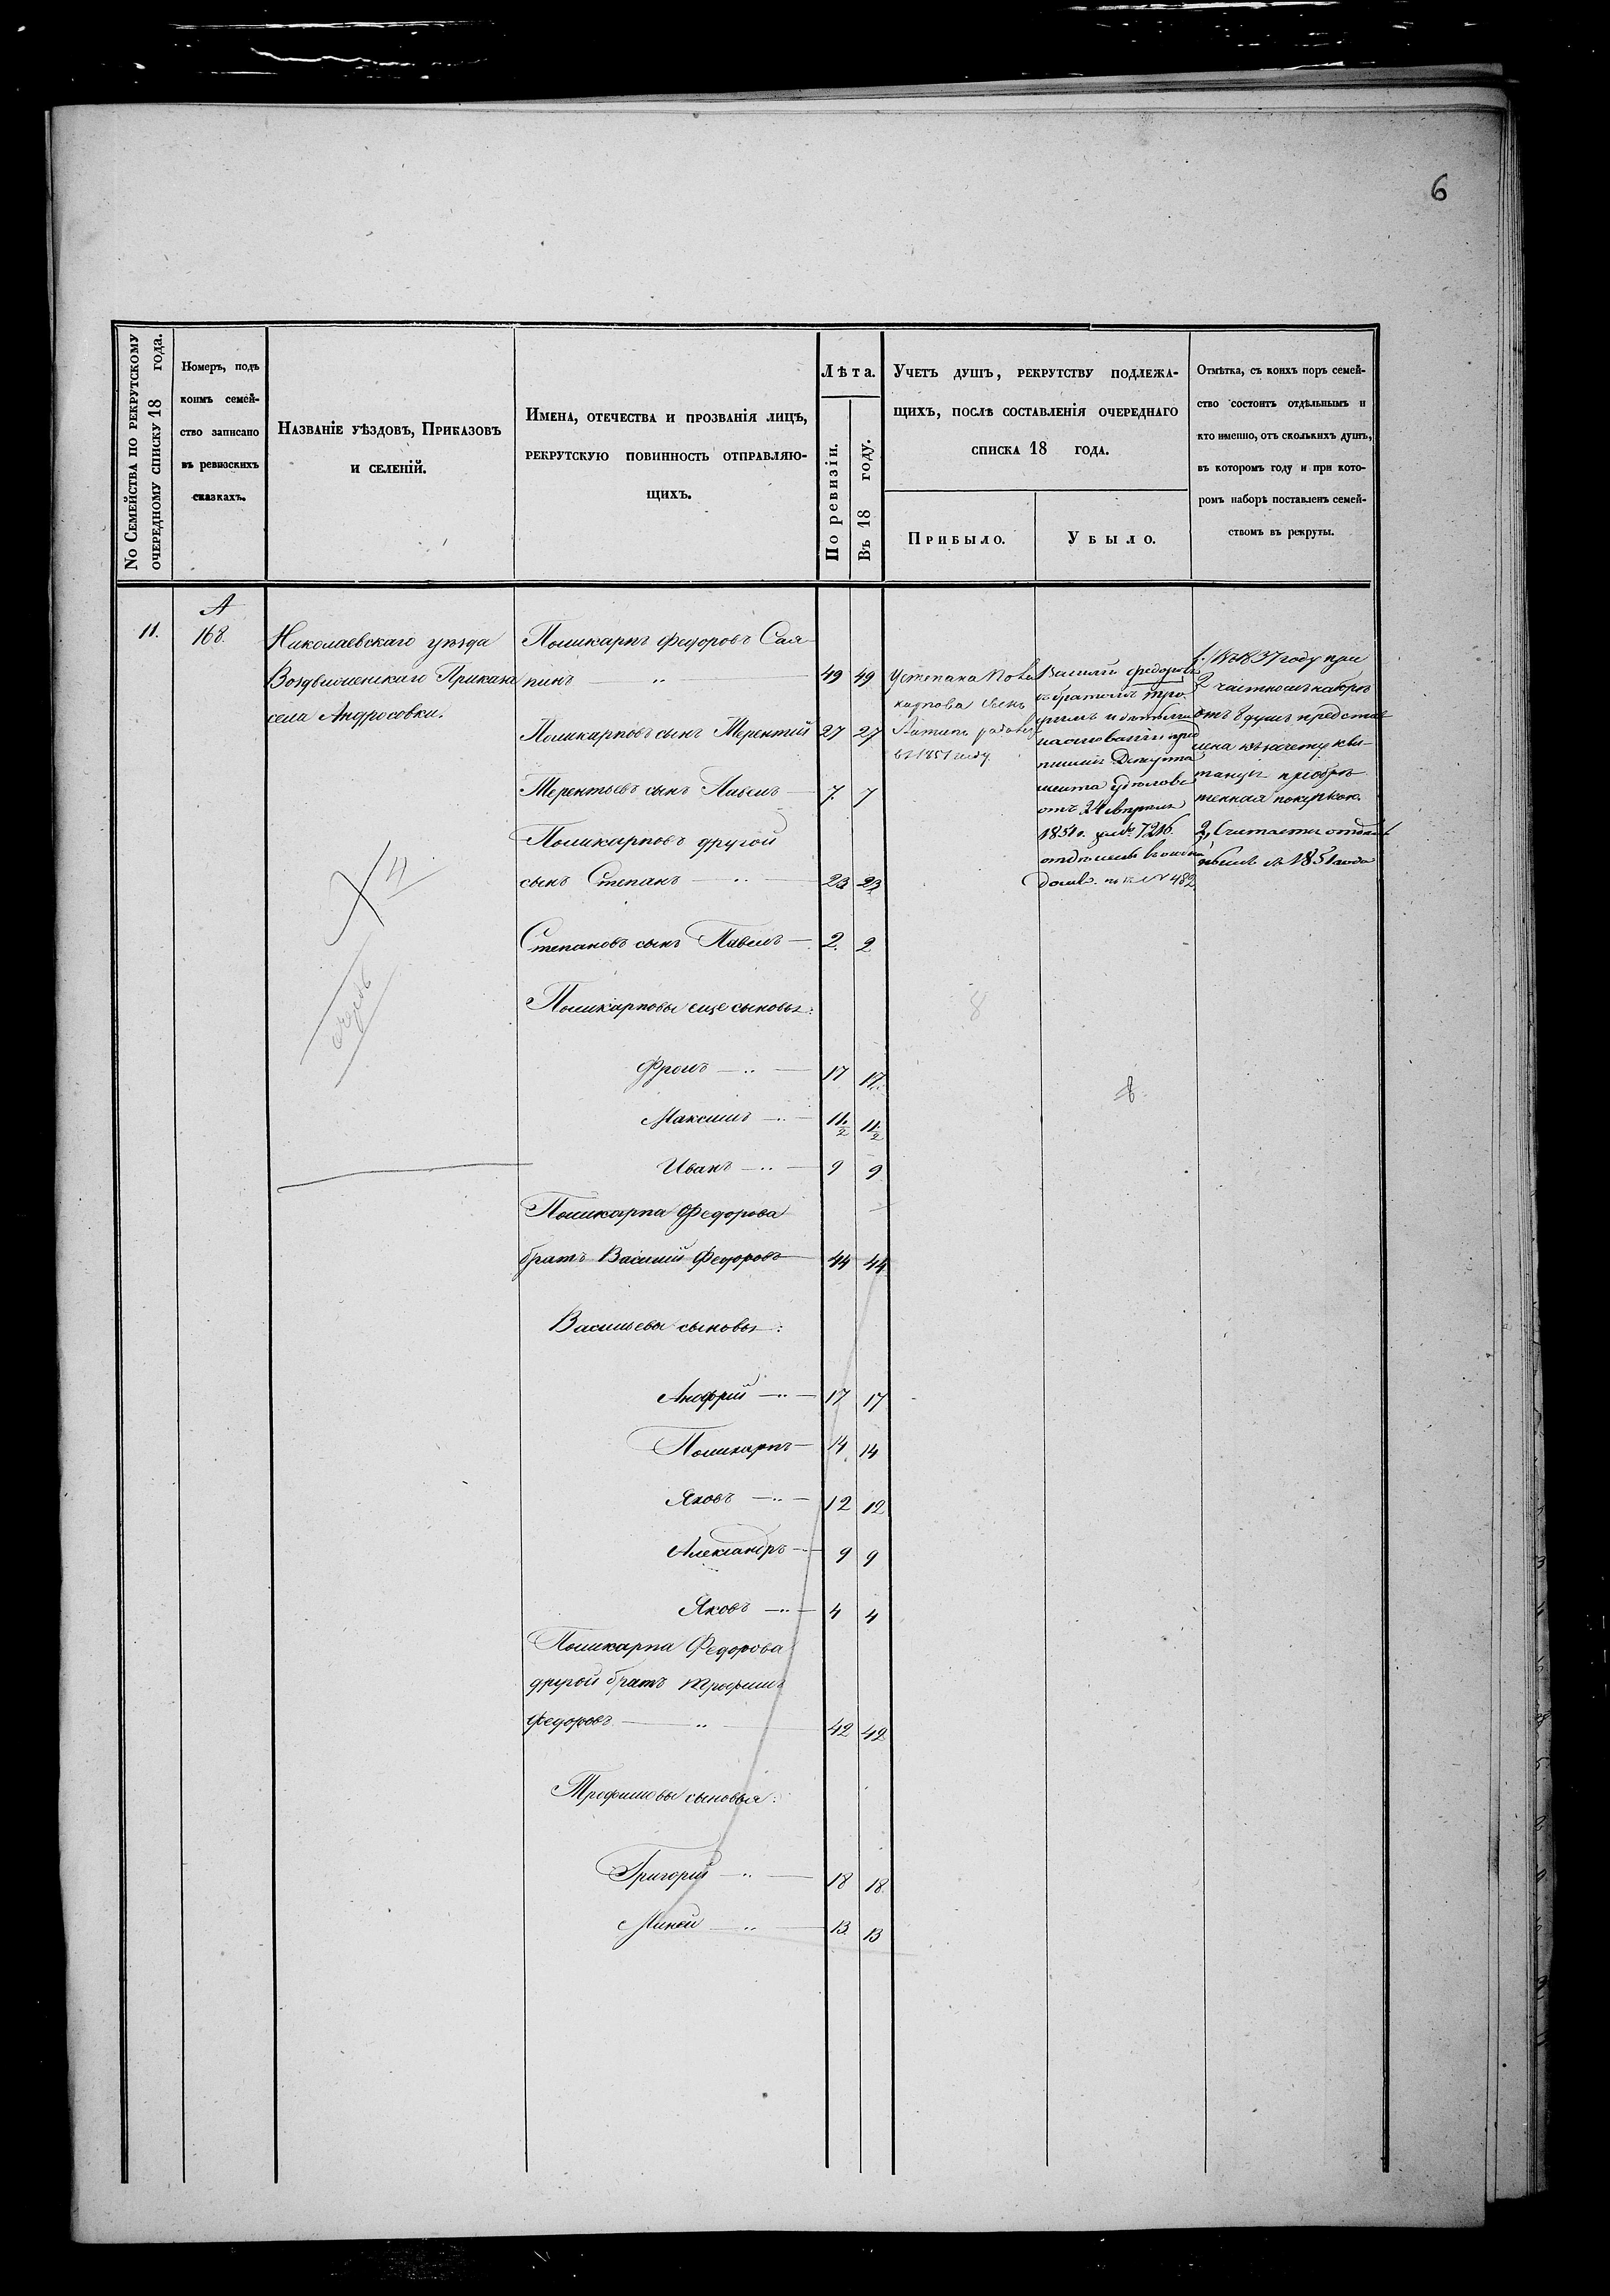 6
No Семейства по рекрутскому
очередному списку 18 года.
Номеръ, подъ
коимъ семей-
ство записано
въ ревизскихъ
сказкахъ.
Названіе уѣздовъ, Приказовъ
и селеній.
Имена, отечества и прозванія лицъ,
рекрутскую повинность отправляю-
щихъ.
Лѣта.
По ревизіи.
Въ 18 году.
Учетъ душъ, рекрутству подлежа-
щихъ, послѣ составленія очереднаго
списка 18 года.
Прибыло.
Убыло.
Отмѣтка, съ коихъ поръ семей-
ство состоитъ отдѣльнымъ и
кто именно, отъ сколькихъ душъ,
въ которомъ году и при кото-
ромъ наборѣ поставленъ семей-
ствомъ въ рекруты.
11.
А
168.
Николаевскаго уѣзда
Воздвиженскаго Приказа
села Андросовки.
Поликарпъ Федоровъ Саля-
пинъ 49 49
Поликарповъ сынъ Терентій 27 27
Терентьевъ сынъ Павелъ 7. 7
Поликарповъ другой
сынъ Степанъ 23 23
Степановъ сынъ Павелъ 2. 2
Поликарповы еще сыновья:
Фролъ 17 17.
Максимъ 11½ 11½
Иванъ 9 9
Поликарпа Федорова
братъ Василій Федоровъ 44 44
Васильевы сыновья:
Анофрій 17 17
Поликарпъ 14 14
Яковъ 12 12
Александръ 9 9
Яковъ 4 4
Поликарпа Федорова
другой братъ Трофимъ
Федоровъ 42 42
Трофимовы сыновья:
Григорій 18 18.
Миней 13. 13
У Степана Поли
карпова сынъ
въ 1851 году.
Василій Федоровъ
съ братомъ Тро-
фимъ и
на основаніи пред
писанія Департа
мента удѣловъ
отъ 24 Апрѣля
1851 г. за № 7216.
отдѣлены
482
1. Въ 1837 году при
частномъ наборѣ
отъ 8 душъ представ
лена къ зачету кви-
танція пріобрѣ
тенная покупкою.
2, Считается отдѣль
нымъ съ 1851 года
8
8.